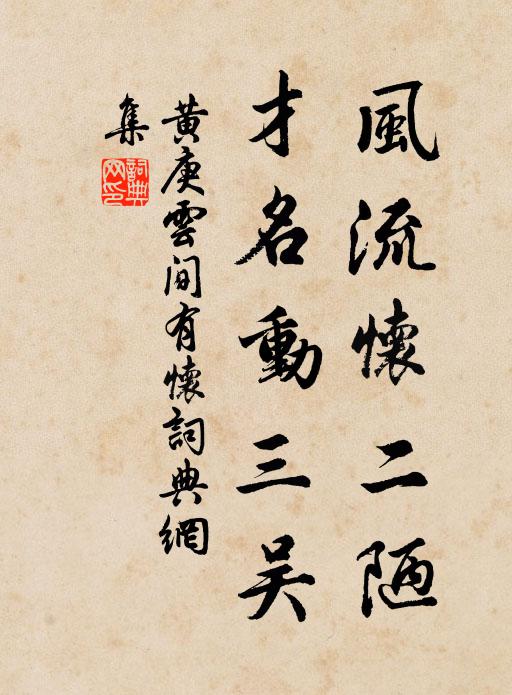 風流懷二陋
才名動三吴
黄庚雲间有懷詞典網
集
詞典網印